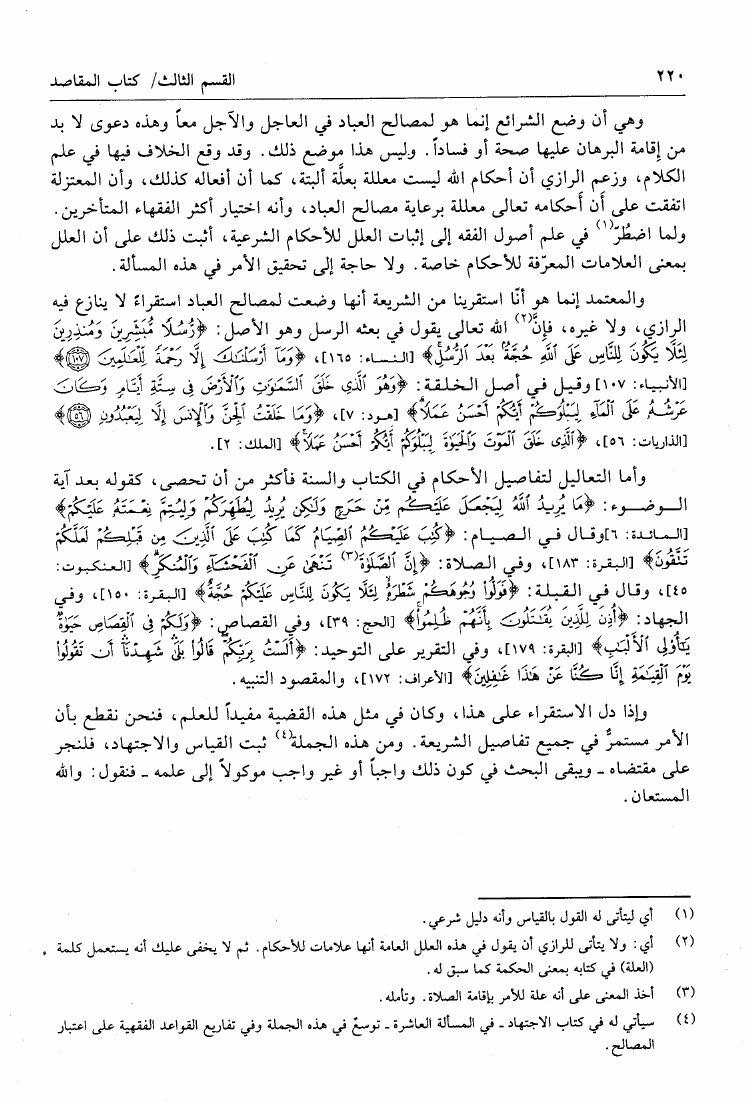 ٢٢٠
القسم الثالث/ كتاب المقاصد
وهي أن وضع الشرائع إنما هو لمصالح العباد في العاجل والآجل معاً وهذه دعوى لا بد
من إقامة البرهان عليها صحة أو فساداً. وليس هذا موضع ذلك. وقد وقع الخلاف فيها في علم
الكلام، وزعم الرازي أن أحكام الله ليست معللة بعلَّة ألبتة، كما أن أفعاله كذلك، وأن المعتزلة
اتفقت على أن أَحكامه تعالى معللة برعاية مصالح العباد، وأنه اختيار أكثر الفقهاء المتأخرين.
ولما اضطُرّ(١) في علم أصول الفقه إلى إثبات العلل للأحكام الشرعية، أثبت ذلك على أن العلل
بمعنى العلامات المعرّفة للأحكام خاصة. ولا حاجة إلى تحقيق الأمر في هذه المسألة.
والمعتمد إنما هو أنّا استقرينا من الشريعة أنها وضعت لمصالح العباد استقراءً لا ينازع فيه
الرازي، ولا غيره، فإنَّ(٢) الله تعالى يقول في بعثه الرسل وهو الأصل: ﴿رُّسُلًا مُّبَشِّرِينَ وَمُنذِرِينَ
لِئَلَّا يَكُونَ لِلنَّاسِ عَلَى ٱللَّهِ حُجَّةٌۢ بَعْدَ ٱلرُّسُلِۚ﴾ [النساء: ١٦٥]، ﴿وَمَآ أَرْسَلْنَٰكَ إِلَّا رَحْمَةً لِّلْعَٰلَمِينَ ١٠٧﴾
[الأنبياء: ١٠٧] وقيل في أصل الخلقة: ﴿وَهُوَ ٱلَّذِى خَلَقَ ٱلسَّمَٰوَٰتِ وَٱلْأَرْضَ فِى سِتَّةِ أَيَّامٍ وَكَانَ
عَرْشُهُۥ عَلَى ٱلْمَآءِ لِيَبْلُوَكُمْ أَيُّكُمْ أَحْسَنُ عَمَلًاۗ﴾ [هود: ٧]، ﴿وَمَا خَلَقْتُ ٱلْجِنَّ وَٱلْإِنسَ إِلَّا لِيَعْبُدُونِ ٥٦﴾
[الذاريات: ٥٦]، ﴿ٱلَّذِى خَلَقَ ٱلْمَوْتَ وَٱلْحَيَوٰةَ لِيَبْلُوَكُمْ أَيُّكُمْ أَحْسَنُ عَمَلًاۚ﴾ [الملك: ٢].
وأما التعاليل لتفاصيل الأحكام في الكتاب والسنة فأكثر من أن تحصى، كقوله بعد آية
الوضوء: ﴿مَا يُرِيدُ ٱللَّهُ لِيَجْعَلَ عَلَيْكُم مِّنْ حَرَجٍ وَلَٰكِن يُرِيدُ لِيُطَهِّرَكُمْ وَلِيُتِمَّ نِعْمَتَهُۥ عَلَيْكُمْ﴾
[المائدة: ٦]وقال في الصيام: ﴿كُتِبَ عَلَيْكُمُ ٱلصِّيَامُ كَمَا كُتِبَ عَلَى ٱلَّذِينَ مِن قَبْلِكُمْ لَعَلَّكُمْ
تَتَّقُونَ﴾ [البقرة: ١٨٣]، وفي الصلاة: ﴿إِنَّ ٱلصَّلَوٰةَ(٣) تَنْهَىٰ عَنِ ٱلْفَحْشَآءِ وَٱلْمُنكَرِۗ﴾ [العنكبوت:
٤٥]، وقال في القبلة: ﴿فَوَلُّوا۟ وُجُوهَكُمْ شَطْرَهُۥ لِئَلَّا يَكُونَ لِلنَّاسِ عَلَيْكُمْ حُجَّةٌ﴾ [البقرة: ١٥٠]، وفي
الجهاد: ﴿أُذِنَ لِلَّذِينَ يُقَٰتَلُونَ بِأَنَّهُمْ ظُلِمُوا۟ۚ﴾ [الحج: ٣٩]، وفي القصاص: ﴿وَلَكُمْ فِى ٱلْقِصَاصِ حَيَوٰةٌ
يَٰٓأُو۟لِى ٱلْأَلْبَٰبِ﴾ [البقرة: ١٧٩]، وفي التقرير على التوحيد: ﴿أَلَسْتُ بِرَبِّكُمْۖ قَالُوا۟ بَلَىٰۛ شَهِدْنَآۛ أَن تَقُولُوا۟
يَوْمَ ٱلْقِيَٰمَةِ إِنَّا كُنَّا عَنْ هَٰذَا غَٰفِلِينَ﴾ [الأعراف: ١٧٢]، والمقصود التنبيه.
وإذا دل الاستقراء على هذا، وكان في مثل هذه القضية مفيداً للعلم، فنحن نقطع بأن
الأمر مستمرٌّ في جميع تفاصيل الشريعة. ومن هذه الجملة(٤) ثبت القياس والاجتهاد، فلنجر
على مقتضاه ـ ويبقى البحث في كون ذلك واجباً أو غير واجب موكولاً إلى علمه ـ فنقول: والله
المستعان.
(١) أي ليتأتى له القول بالقياس وأنه دليل شرعي.
(٢) أي: ولا يتأتى للرازي أن يقول في هذه العلل العامة أنها علامات للأحكام. ثم لا يخفى عليك أنه يستعمل كلمة
(العلة) في كتابه بمعنى الحكمة كما سبق له.
(٣) أخذ المعنى على أنه علة للأمر بإقامة الصلاة. وتأمله.
(٤) سيأتي له في كتاب الاجتهاد ـ في المسألة العاشرة ـ توسعٌ في هذه الجملة وفي تفاريع القواعد الفقهية على اعتبار
المصالح.